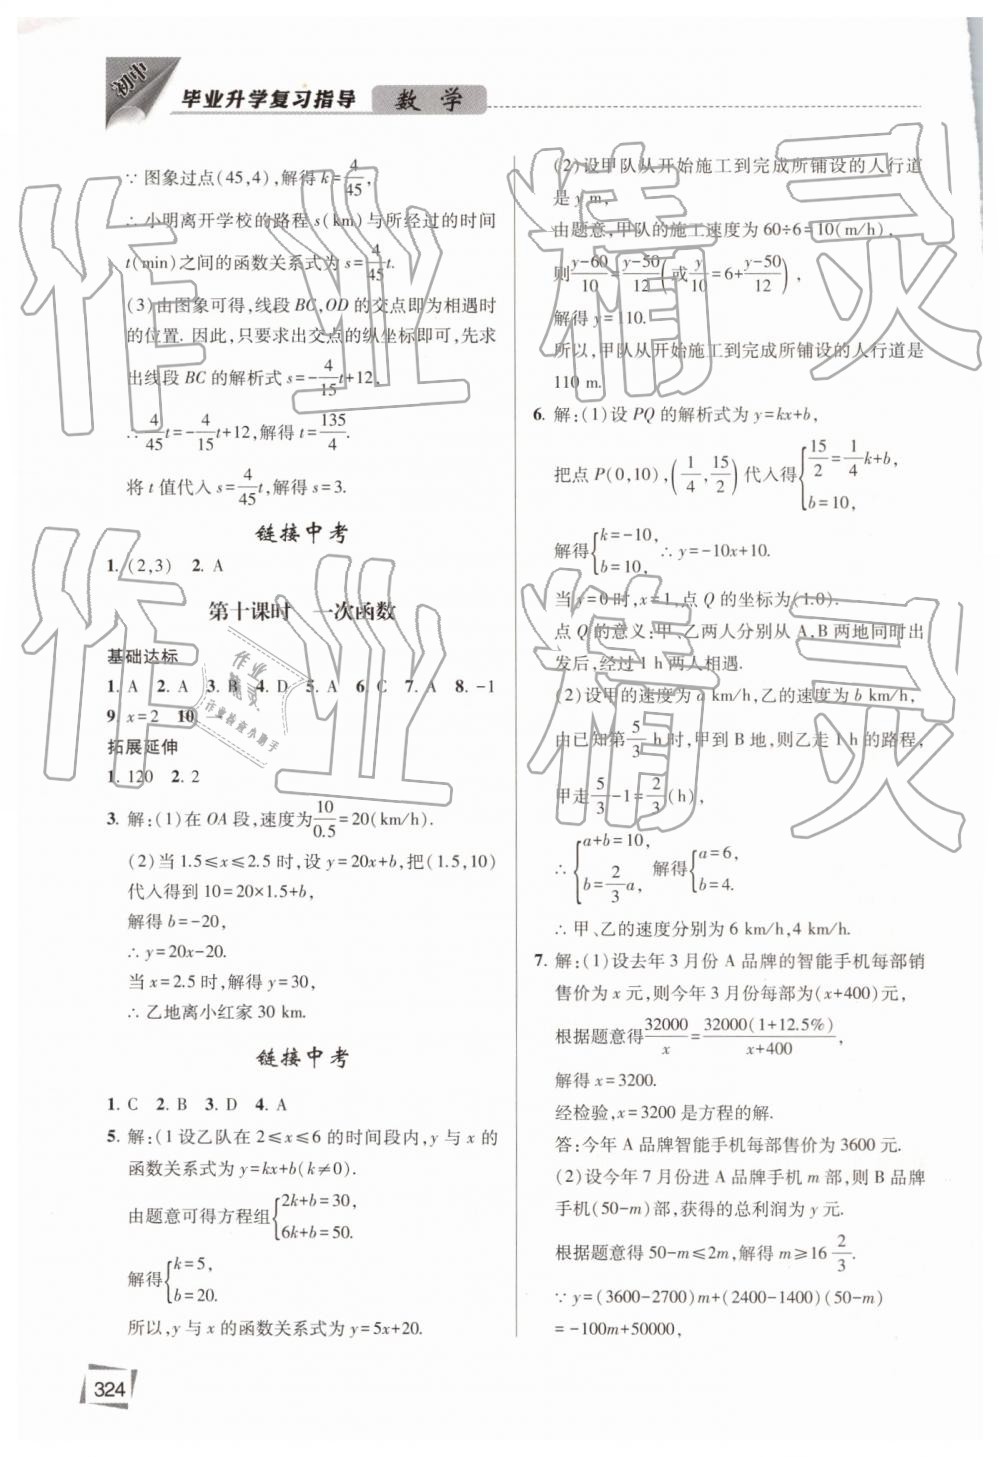 初中
毕业升学复习指导 数学
∵图象过点(45,4),解得k=4/45,
∴小明离开学校的路程s(km)与所经过的时间
t(min)之间的函数关系式为s=4/45t.
(3)由图象可得,线段BC,OD的交点即为相遇时
的位置.因此,只要求出交点的纵坐标即可,先求
出线段BC的解析式s=-4/15t+12,
∴4/45t=-4/15t+12,解得t=135/4.
将t值代入s=4/45t,解得s=3.
链接中考
1. (2,3) 2. A
第十课时 一次函数
基础达标
1. A 2. A 3. B 4. D 5. A 6. C 7. A 8. -1
9. x=2 10
拓展延伸
1. 120 2. 2
3. 解:(1)在OA段,速度为10/0.5=20(km/h).
(2)当1.5≤x≤2.5时,设y=20x+b,把(1.5,10)
代入得到10=20×1.5+b,
解得b=-20,
∴y=20x-20.
当x=2.5时,解得y=30,
∴乙地离小红家30 km.
链接中考
1. C 2. B 3. D 4. A
5. 解:(1设乙队在2≤x≤6的时间段内,y与x的
函数关系式为y=kx+b(k≠0).
由题意可得方程组{2k+b=30,
6k+b=50.
解得{k=5,
b=20.
所以,y与x的函数关系式为y=5x+20.
(2)设甲队从开始施工到完成所铺设的人行道
是y m,
由题意,甲队的施工速度为60÷6=10(m/h),
则y-60/10=y-50/12(或y/10=6+y-50/12),
解得y=110.
所以,甲队从开始施工到完成所铺设的人行道是
110 m.
6. 解:(1)设PQ的解析式为y=kx+b,
把点P(0,10),(1/4,15/2)代入得{15/2=1/4k+b,
b=10,
解得{k=-10,
b=10,
∴y=-10x+10.
当y=0时,x=1,点Q的坐标为(1.0).
点Q的意义:甲、乙两人分别从A,B两地同时出
发后,经过1 h两人相遇.
(2)设甲的速度为a km/h,乙的速度为b km/h,
由已知第5/3 h时,甲到B地,则乙走1 h的路程,
甲走5/3-1=2/3(h),
∴{a+b=10,
b=2/3a,
解得{a=6,
b=4.
∴甲、乙的速度分别为6 km/h,4 km/h.
7. 解:(1)设去年3月份A品牌的智能手机每部销
售价为x元,则今年3月份每部为(x+400)元,
根据题意得32000/x=32000(1+12.5%)/x+400,
解得x=3200.
经检验,x=3200是方程的解.
答:今年A品牌智能手机每部售价为3600元.
(2)设今年7月份进A品牌手机m部,则B品牌
手机(50-m)部,获得的总利润为y元.
根据题意得50-m≤2m,解得m≥16 2/3.
∵y=(3600-2700)m+(2400-1400)(50-m)
=-100m+50000,
324
作业精灵
作业精灵
作业
精灵
作业检查小助手